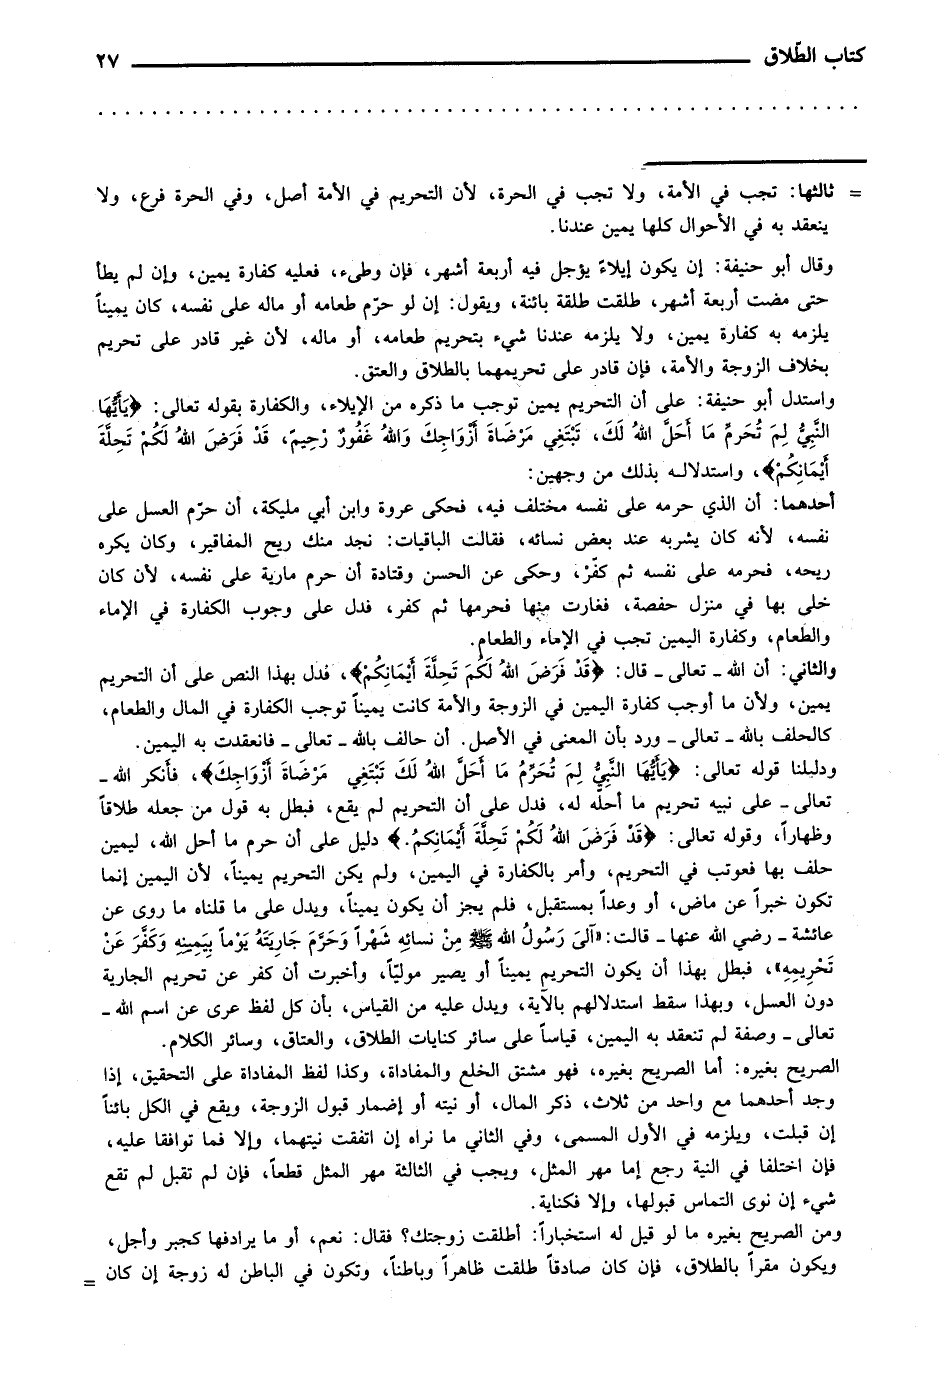 كتاب الطّلاق ٢٧
= ثالثها: تجب في الأمة، ولا تجب في الحرة، لأن التحريم في الأمة أصل، وفي الحرة فرع، ولا
ينعقد به في الأحوال كلها يمين عندنا.
وقال أبو حنيفة: إن يكون إيلاءً يؤجل فيه أربعة أشهر، فإن وطىء، فعليه كفارة يمين، وإن لم يطأ
حتى مضت أربعة أشهر، طلقت طلقة بائنة، ويقول: إن لو حرّم طعامه أو ماله على نفسه، كان يميناً
يلزمه به كفارة يمين، ولا يلزمه عندنا شيء بتحريم طعامه، أو ماله، لأن غير قادر على تحريم
بخلاف الزوجة والأمة، فإن قادر على تحريمهما بالطلاق والعتق.
واستدل أبو حنيفة: على أن التحريم يمين توجب ما ذكره من الإيلاء، والكفارة بقوله تعالى: ﴿يَأَيُّهَا
النَّبِيُّ لِمَ تُحَرِمُ مَا أَحَلَّ اللهُ لَكَ، تَبْتَغِي مَرْضَاةَ أَزْوَاجِكَ وَاللهُ غَفُورٌ رَحِيمٌ، قَدْ فَرَضَ اللهُ لَكُمْ تَحِلَّةَ
أَيْمَانِكُمْ﴾، واستدلاله بذلك من وجهين:
أحدهما: أن الذي حرمه على نفسه مختلف فيه، فحكى عروة وابن أبي مليكة، أن حرّم العسل على
نفسه، لأنه كان يشربه عند بعض نسائه، فقالت الباقيات: نجد منك ريح المفاقير، وكان يكره
ريحه، فحرمه على نفسه ثم كفّر، وحكى عن الحسن وقتادة أن حرم مارية على نفسه، لأن كان
خلى بها في منزل حفصة، فغارت منها فحرمها ثم كفر، فدل على وجوب الكفارة في الإماء
والطعام، وكفارة اليمين تجب في الإماء والطعام.
والثاني: أن الله ـ تعالى ـ قال: ﴿قَدْ فَرَضَ اللهُ لَكُمَ تَحِلَّةَ أَيْمَانِكُمْ﴾، فدل بهذا النص على أن التحريم
يمين، ولأن ما أوجب كفارة اليمين في الزوجة والأمة كانت يميناً توجب الكفارة في المال والطعام،
كالحلف بالله ـ تعالى ـ ورد بأن المعنى في الأصل. أن حالف بالله ـ تعالى ـ فانعقدت به اليمين.
ودليلنا قوله تعالى: ﴿يَأَيُّهَا النَّبِيُّ لِمَ تُحَرِّمُ مَا أَحَلَّ اللهُ لَكَ تَبْتَغِي مَرْضَاةَ أَزْوَاجِكَ﴾، فأنكر الله ـ
تعالى ـ على نبيه تحريم ما أحلّه له، فدل على أن التحريم لم يقع، فبطل به قول من جعله طلاقاً
وظهاراً، وقوله تعالى: ﴿قَدْ فَرَضَ اللهُ لَكُمْ تَحِلَّةَ أَيْمَانِكمُ.﴾ دليل على أن حرم ما أحل الله، ليمين
حلف بها فعوتب في التحريم، وأمر بالكفارة في اليمين، ولم يكن التحريم يميناً، لأن اليمين إنما
تكون خبراً عن ماض، أو وعداً بمستقبل، فلم يجز أن يكون يميناً، ويدل على ما قلناه ما روى عن
عائشة ـ رضي الله عنها ـ قالت: «آلىَ رَسُولُ اللهِ ﷺ مِنْ نسائِهِ شَهْراً وَحَرَّمَ جَارِيَتَهُ يَوْماً بِيَمِينِهِ وَكَفَّرَ عَنْ
تَحْرِيمِهِ»، فبطل بهذا أن يكون التحريم يميناً أو يصير موليّاً، وأخبرت أن كفر عن تحريم الجارية
دون العسل، وبهذا سقط استدلالهم بالآية، ويدل عليه من القياس، بأن كل لفظ عرى عن اسم الله ـ
تعالى ـ وصفة لم تنعقد به اليمين، قياساً على سائر كنايات الطلاق، والعتاق، وسائر الكلام.
الصريح بغيره: أما الصريح بغيره، فهو مشتق الخلع والمفاداة، وكذا لفظ المفاداة على التحقيق، إذا
وجد أحدهما مع واحد من ثلاث، ذكر المال، أو نيته أو إضمار قبول الزوجة، ويقع في الكل بائناً
إن قبلت، ويلزمه في الأول المسمى، وفي الثاني ما نراه إن اتفقت نيتهما، وإلا فما توافقا عليه،
فإن اختلفا في النية رجع إما مهر المثل، ويجب في الثالثة مهر المثل قطعاً، فإن لم تقبل لم تقع
شيء إن نوى التماس قبولها، وإلا فكناية.
ومن الصريح بغيره ما لو قيل له استخباراً: أطلقت زوجتك؟ فقال: نعم، أو ما يرادفها كجبر وأجل،
ويكون مقراً بالطلاق، فإن كان صادقاً طلقت ظاهراً وباطناً، وتكون في الباطن له زوجة إن كان =